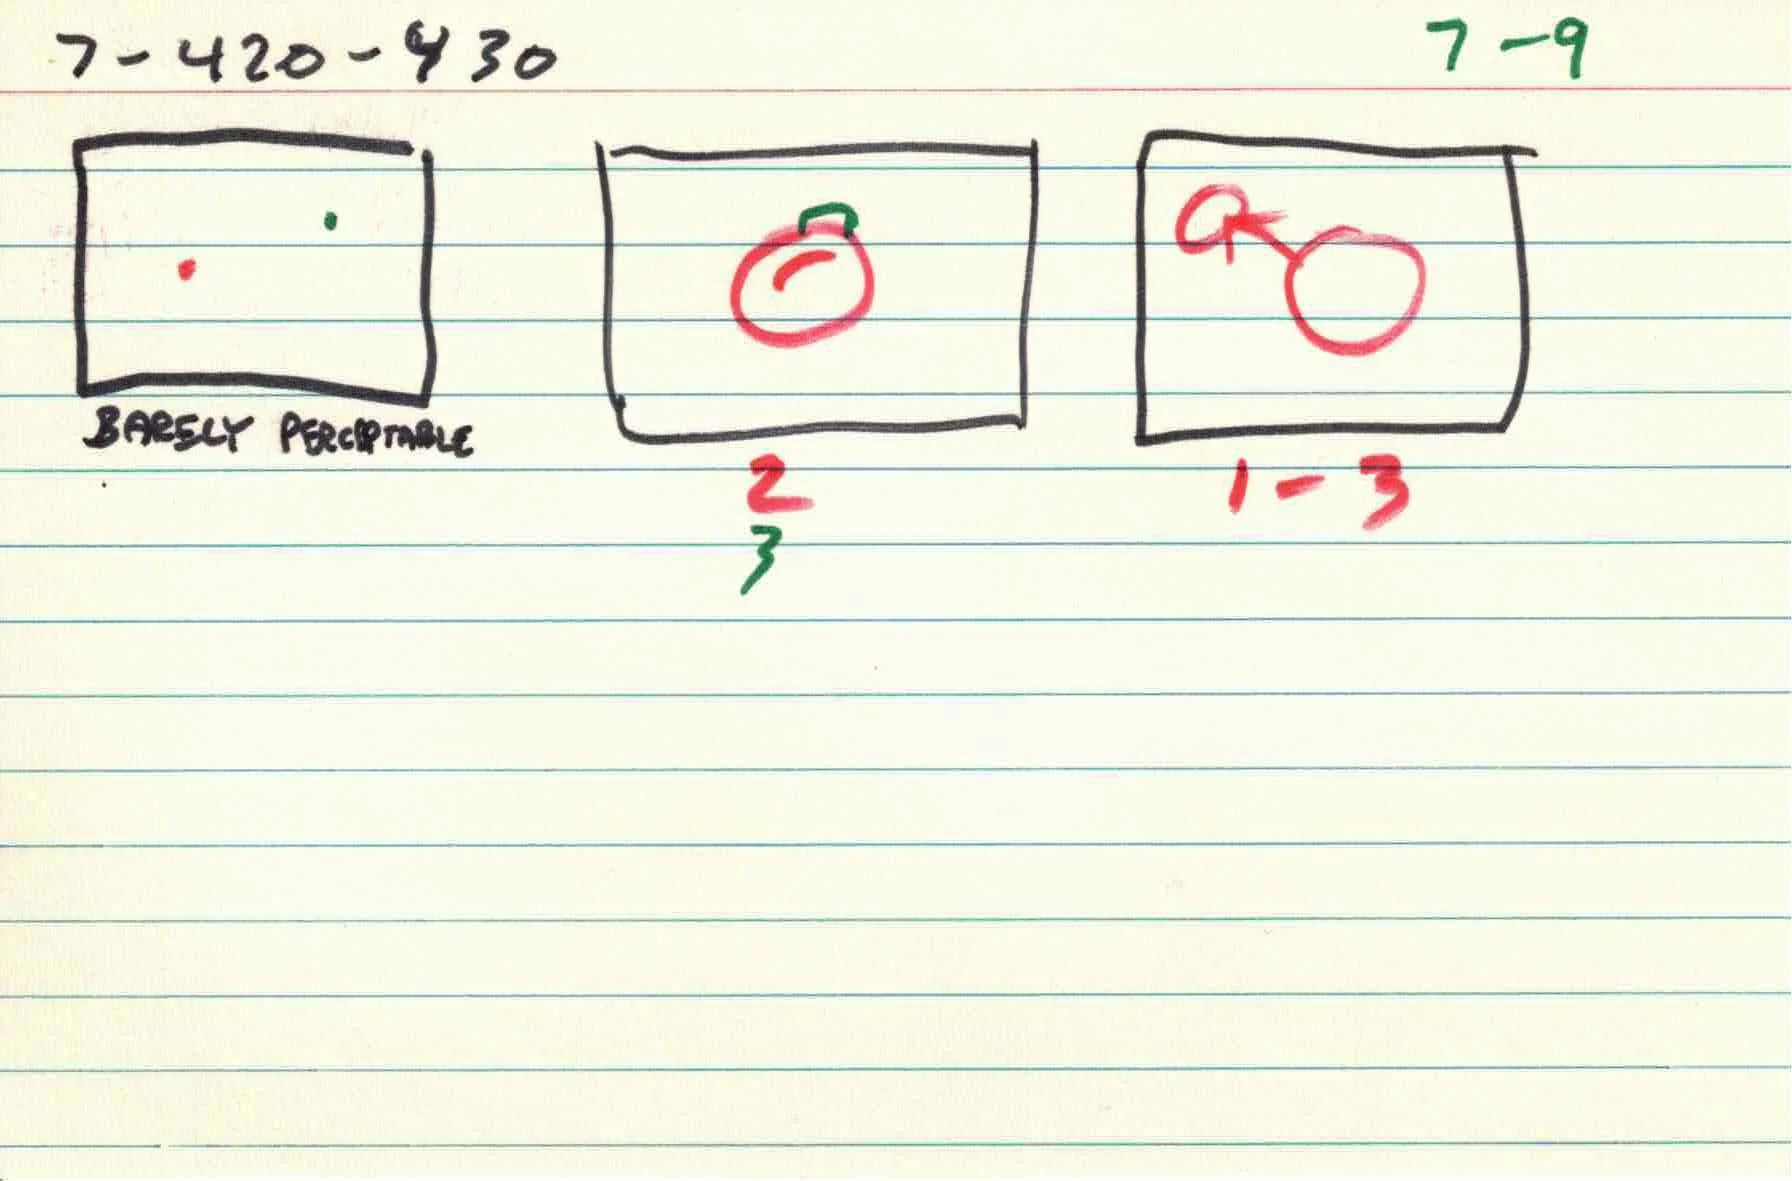 7-420-430
7-9
BARELY PERCEPTABLE
2
1-3
3